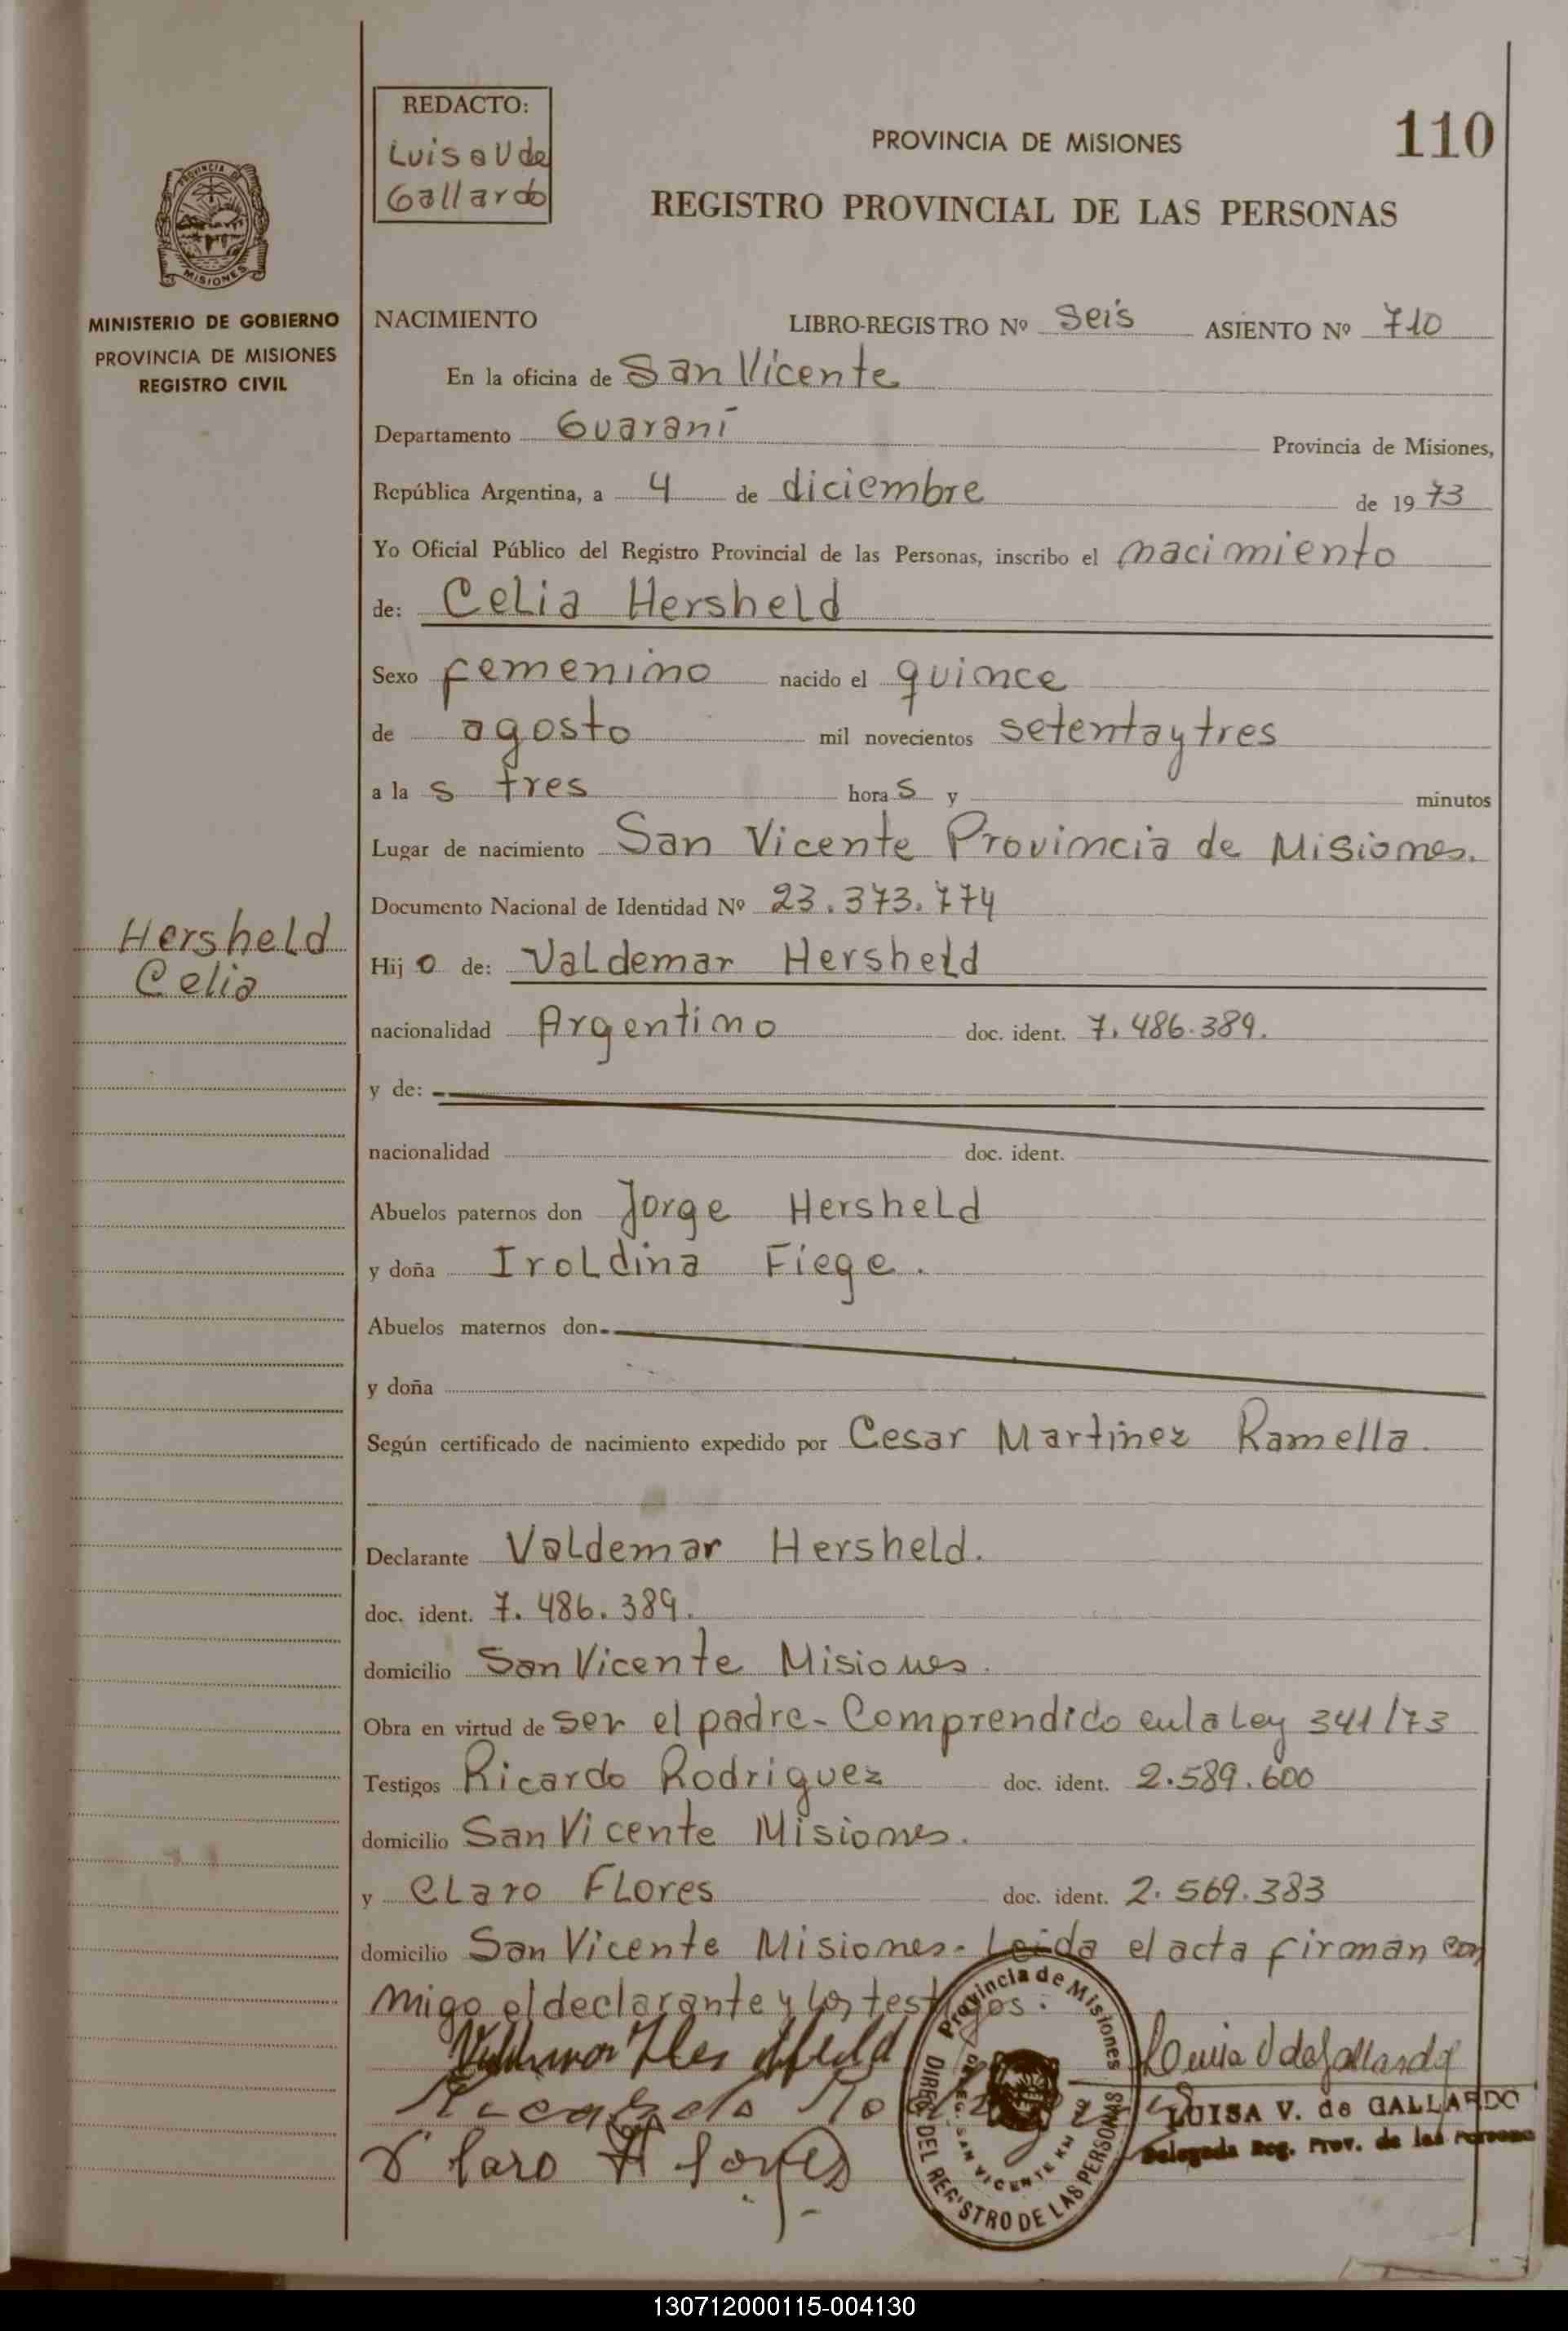 REDACTO:
Luisa V de
Gallardo
PROVINCIA DE MISIONES
110
REGISTRO PROVINCIAL DE LAS PERSONAS
PROVINCIA DE
MISIONES
MINISTERIO DE GOBIERNO
PROVINCIA DE MISIONES
REGISTRO CIVIL
NACIMIENTO LIBRO-REGISTRO Nº Seis ASIENTO Nº 710
En la oficina de San Vicente
Departamento Guaraní Provincia de Misiones,
República Argentina, a 4 de diciembre de 1973
Yo Oficial Público del Registro Provincial de las Personas, inscribo el nacimiento
de: Celia Hersheld
Sexo femenino nacido el quince
de agosto mil novecientos setenta y tres
a la s tres hora s y minutos
Lugar de nacimiento San Vicente Provincia de Misiones.
Documento Nacional de Identidad Nº 23.373.774
Hersheld
Celia
Hij o de: Valdemar Hersheld
nacionalidad Argentino doc. ident. 7.486.389.
y de:
nacionalidad doc. ident.
Abuelos paternos don Jorge Hersheld
y doña Iroldina Fiege.
Abuelos maternos don
y doña
Según certificado de nacimiento expedido por Cesar Martinez Ramella.
Declarante Valdemar Hersheld.
doc. ident. 7.486.389.
domicilio San Vicente Misiones.
Obra en virtud de ser el padre - Comprendido en la Ley 341/73
Testigos Ricardo Rodriguez doc. ident. 2.589.600
domicilio San Vicente Misiones.
y Claro Flores doc. ident. 2.569.383
domicilio San Vicente Misiones - Leida el acta firman con
migo el declarante y los testigos.
Provincia de Misiones
DIREC. DEL REGISTRO DE LAS PERSONAS
SAN VICENTE KM
Luisa V de Gallardo
LUISA V. de GALLARDO
Delegada Reg. Prov. de las Personas
Claro Flores
130712000115-004130